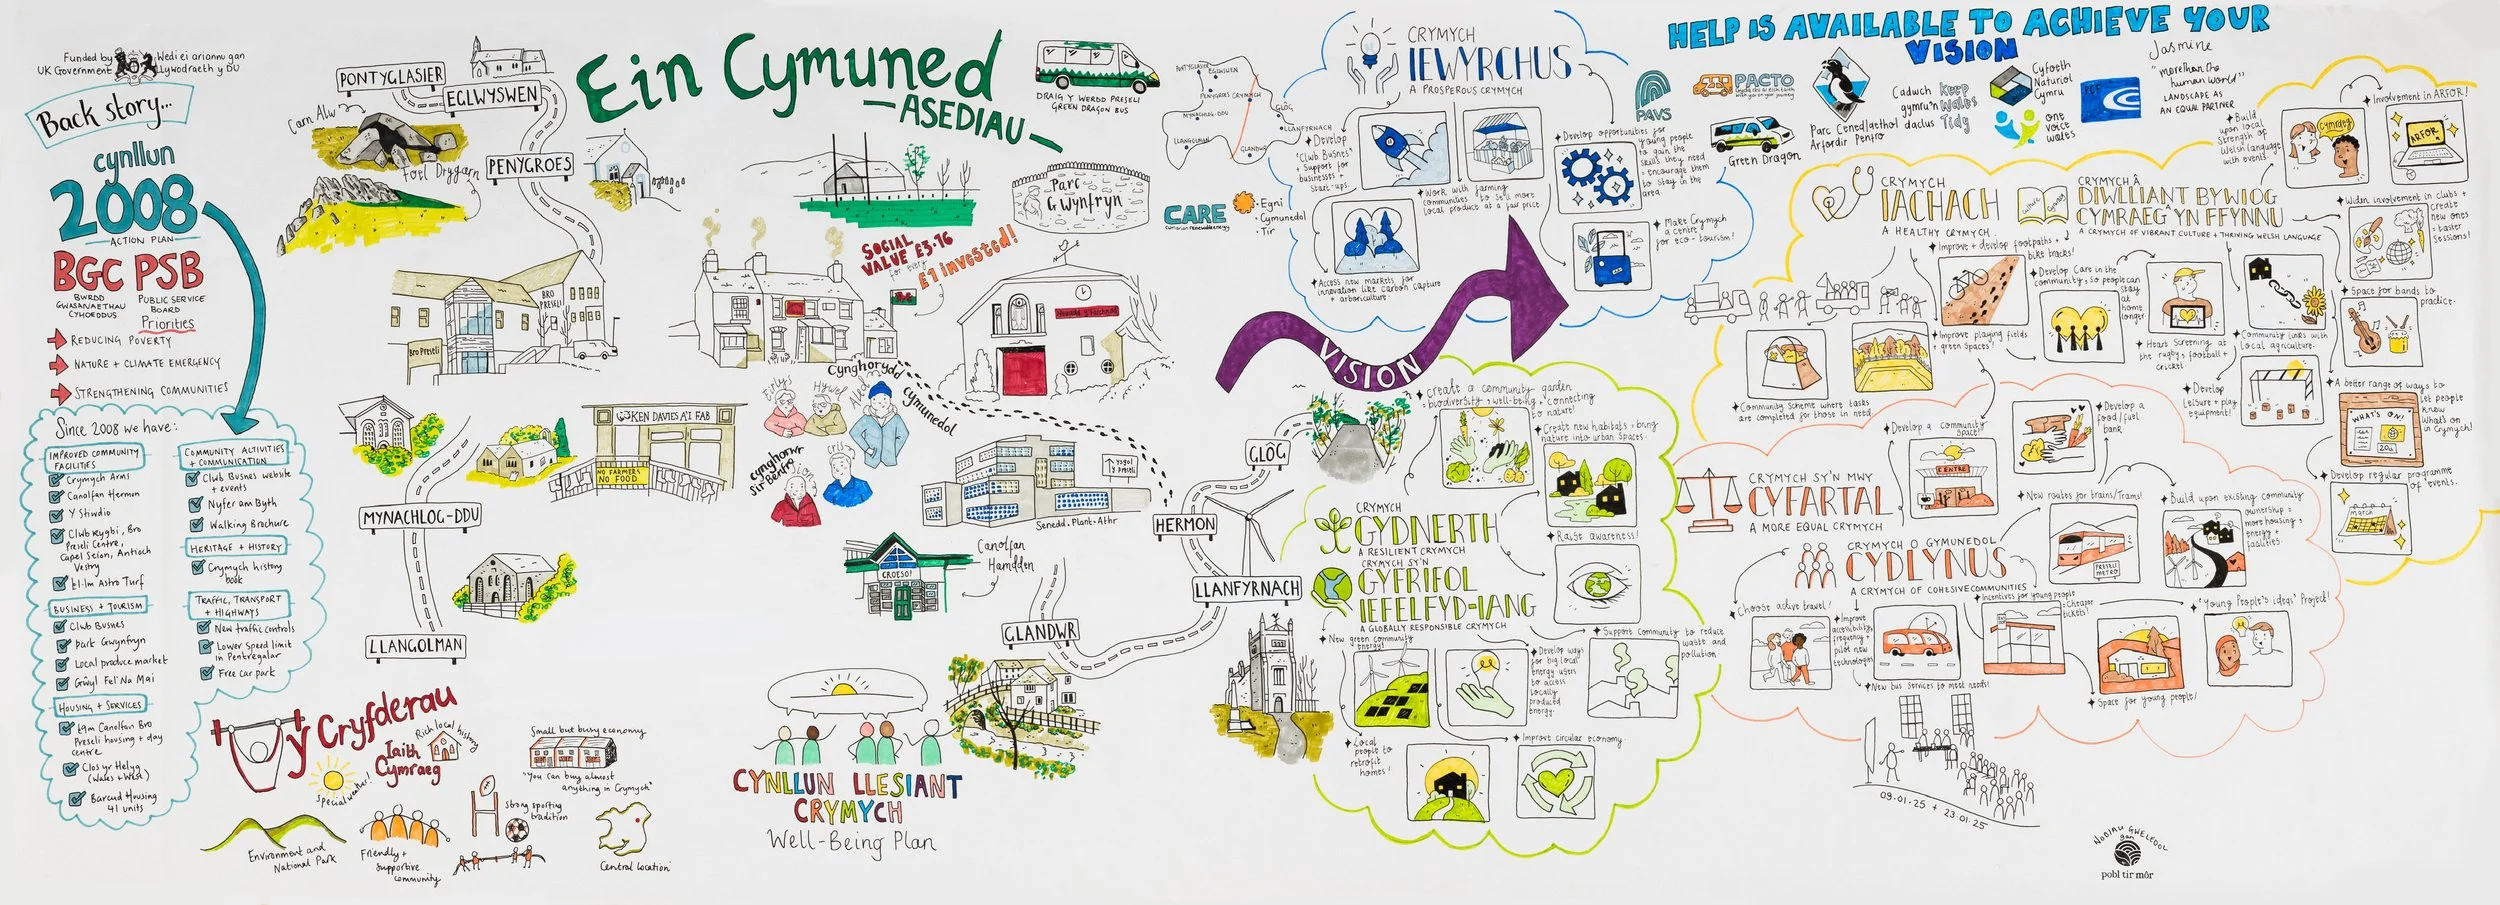 Funded by
UK Government
Wedi ei ariannu gan
Llywodraeth y DU
Back story...
cynllun
2008
ACTION PLAN
BGC PSB
BWRDD
GWASANAETHAU
CYHOEDDUS
PUBLIC SERVICE
BOARD
Priorities
REDUCING POVERTY
NATURE + CLIMATE EMERGENCY
STRENGTHENING COMMUNITIES
Since 2008 we have:
IMPROVED COMMUNITY
FACILITIES
Crymych Arms
Canolfan Hermon
Y Stiwdio
Clwb rygbi, Bro
Preseli Centre,
Capel Seion, Antioch
Vestry
£1.1m Astro Turf
BUSINESS + TOURISM
Clwb Busnes
Park Gwynfryn
Local produce market
Gŵyl Fel 'Na Mai
HOUSING + SERVICES
£9m Canolfan Bro
Preseli housing + day
centre
Clos yr Helyg
(Wales + West)
Barcud Housing
41 units
COMMUNITY ACTIVITIES
+ COMMUNICATION
Clwb Busnes website
+ events
Nyfer am Byth
Walking Brochure
HERITAGE + HISTORY
Crymych history
book
TRAFFIC, TRANSPORT
+ HIGHWAYS
New traffic controls
Lower Speed limit
in Pentregalar
Free car park
Ein Cymuned
- ASEDIAU -
PONTYGLASIER
EGLWYSWEN
PENYGROES
Carn Alw
Foel Drygarn
BRO
PRESELI
Bro Preseli
DRAIG Y WERDD PRESELI
GREEN DRAGON BUS
Parc
Gwynfryn
SOCIAL
VALUE £3.16
for every
£1 invested!
Neuadd y Farchnad
KEN DAVIES A'I FAB
NO FARMERS
NO FOOD
Cynghorydd
Cymunedol
Hywel
Cris
Cynghorwr
Sir Benfro
ysgol
y Preseli
Senedd · Plant · Athr
CROESO!
Canolfan
Hamdden
MYNACHLOG-DDU
LLANGOLMAN
GLÔG
HERMON
LLANFYRNACH
GLANDWR
y Cryfderau
Iaith
Cymraeg
Rich local history
special weather!
Environment and
National Park
Friendly +
supportive
community
Strong sporting
tradition
Small but busy economy
"You can buy almost
anything in Crymych"
Central location
CYNLLUN LLESIANT
CRYMYCH
Well-Being Plan
PONTYGLASIER
EGLWYSWEN
PENYGROES
CRYMYCH
GLÔG
MYNACHLOG-DDU
LLANFYRNACH
LLANGOLMAN
GLANDWR
CARE
· Egni
· Cymunedol
· Tir
VISION
CRYMYCH
IEWYRCHUS
A PROSPEROUS CRYMYCH
Develop
'Clwb Busnes'
+ Support for
businesses +
Start-ups.
Work with farming
communities to sell more
local product at a fair price
Develop opportunities for
young people
to gain the
skills they need
+ encourage them
to stay in the
area
Make Crymych
a centre
for eco-tourism!
Access new markets for
innovation like carbon capture
+ arboriculture
CRYMYCH
GYDNERTH
A RESILIENT CRYMYCH
CRYMYCH SY'N
GYFRIFOL
IEFELFYD-IANG
A GLOBALLY RESPONSIBLE CRYMYCH
Create a community garden
= biodiversity, well-being + connecting
to nature!
Create new habitats + bring
nature into urban spaces.
Raise awareness!
Support community to reduce
waste and
pollution.
New green community
energy!
Develop ways
for big local
energy users
to access
locally
produced
energy.
Local
people to
retrofit
homes!
Improve circular economy.
HELP IS AVAILABLE TO ACHIEVE YOUR
VISION
PAVS
PACTO
Green Dragon
Parc Cenedlaethol
Arfordir Penfro
Cadwch
gymru'n
daclus
Keep
Wales
Tidy
Cyfoeth
Naturiol
Cymru
one
voice
wales
Jasmine
"more than the
human world"
LANDSCAPE AS
AN EQUAL PARTNER
CRYMYCH
IACHACH
A HEALTHY CRYMYCH
Improve + develop footpaths +
bike tracks!
Develop Care in the
community, so people can
stay
at
home
longer
Heart Screening at
the rugby, football +
cricket!
Improve playing fields
+ green spaces!
Community Scheme where tasks
are completed for those in need
CRYMYCH Â
DIWLLIANT BYWIOG
CYMRAEG YN FFYNNU
A CRYMYCH OF VIBRANT CULTURE + THRIVING WELSH LANGUAGE
culture
Cymraeg
Build
upon local
strength of
Welsh language
with events
Cymraeg
Involvement in ARFOR!
ARFOR
Widen involvement in clubs +
create
new ones
+ taster
sessions!
Space for bands to
practice.
Community links with
local agriculture.
Develop
leisure + play
equipment!
A better range of ways to
let people
know
What's on
in Crymych!
WHAT'S ON!
Develop regular programme
of events.
March
CRYMYCH SY'N MWY
CYFARTAL
A MORE EQUAL CRYMYCH
Develop a community
space!
CENTRE
Develop a
food/fuel
bank.
New routes for trains/trams!
PRESELI
METRO
Build upon existing community
ownership =
more housing,
energy +
facilities.
CRYMYCH O GYMUNEDOL
CYDLYNUS
A CRYMYCH OF COHESIVE COMMUNITIES
Choose active travel!
Improve
accessibility,
frequency +
pilot new
technologies
New bus services to meet needs!
Incentives for young people
= cheaper
tickets!
Space for young people!
'Young People's ideas' Project!
09.01.25 + 23.01.25
NODIAU GWELEDOL
gan
pobl tir môr